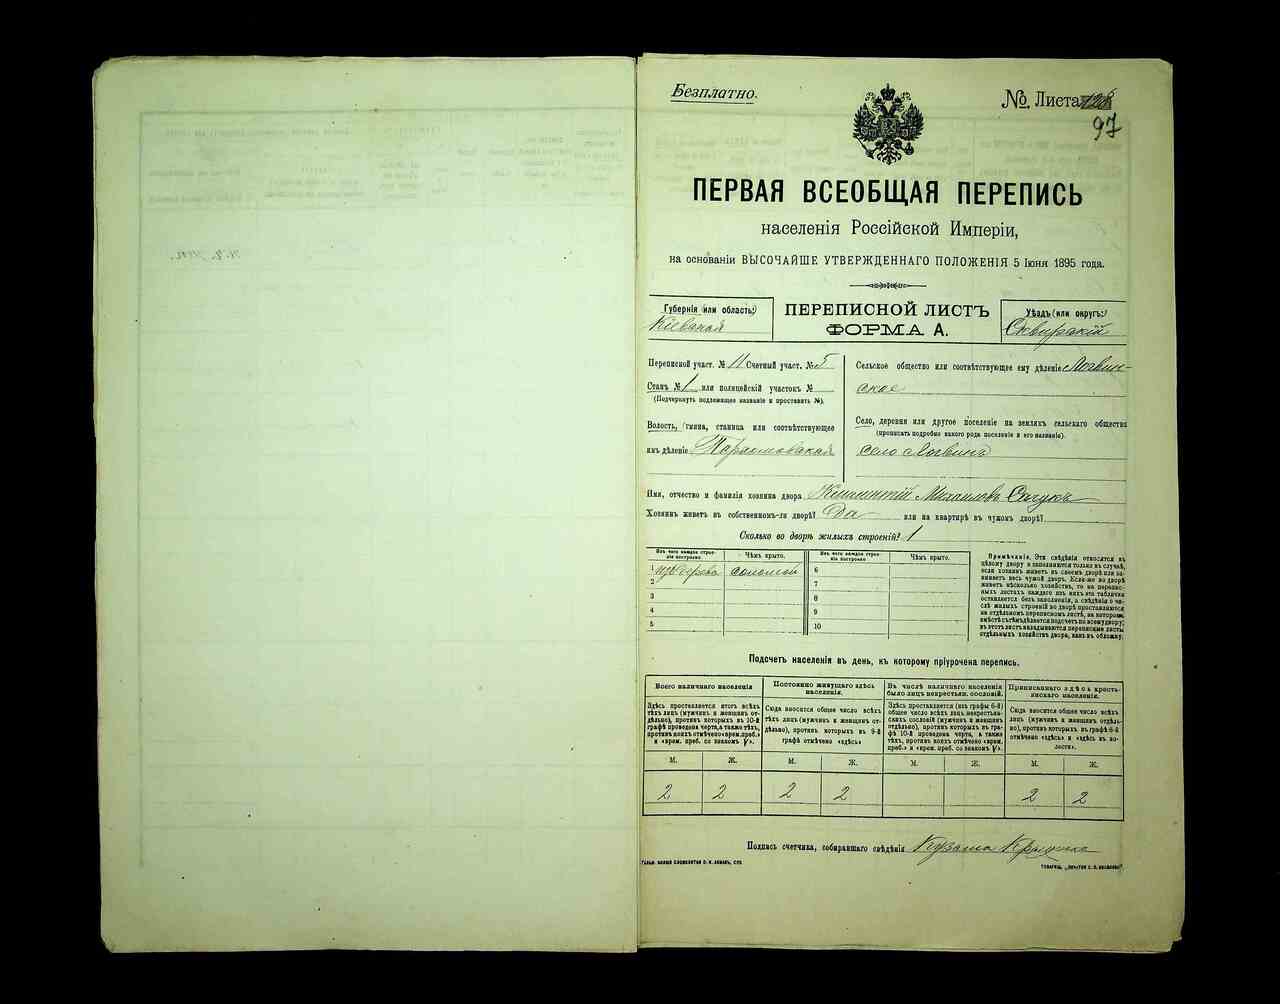 Безплатно.
№. Листа
97
ПЕРВАЯ ВСЕОБЩАЯ ПЕРЕПИСЬ
населенія Россійской Имперіи,
на основаніи ВЫСОЧАЙШЕ УТВЕРЖДЕННАГО ПОЛОЖЕНІЯ 5 Іюня 1895 года.
Губернія (или область:)
Кіевская
ПЕРЕПИСНОЙ ЛИСТЪ
ФОРМА А.
Уѣздъ (или округъ:)
Сквирскій
Переписной участ. № 11 Счетный участ. № 5
Станъ № 1 или полицейскій участок №
(Подчеркнуть подлежащее названіе и проставить №).
Волость, гмина, станица или соотвѣтствующее
имъ дѣленіе
Сельское общество или соотвѣтствующее ему дѣленіе Логвин-
ское
Село, деревня или другое поселеніе на земляхъ сельскаго общества
(прописать подробно какого рода поселеніе и его названіе).
село Логвинъ
Имя, отчество и фамилія хозяина двора Михаиловъ
Хозяинъ живетъ въ собственномъ-ли дворѣ? Да или на квартирѣ въ чужомъ дворѣ?
Сколько во дворѣ жилыхъ строеній? 1
Изъ чего каждое строе-
ніе построено
Чѣмъ крыто.
Изъ чего каждое строе-
ніе построено
Чѣмъ крыто.
1 изъ дерева соломой
2
3
4
5
6
7
8
9
10
Примѣчаніе. Эти свѣдѣнія относятся къ
цѣлому двору и заполняются только въ случаѣ,
если хозяинъ живетъ въ своемъ дворѣ или за-
нимаетъ весь чужой дворъ. Если-же во дворѣ
живетъ нѣсколько хозяйствъ, то на перепис-
ныхъ листахъ каждаго изъ нихъ эта табличка
оставляется безъ заполненія, а свѣдѣнія о чи-
слѣ жилыхъ строеній во дворѣ проставляются
на отдѣльномъ переписномъ листѣ, на которомъ
вмѣстѣ съ тѣмъ дѣлается подсчетъ по всему двору;
въ этотъ листъ вкладываются переписные листы
отдѣльныхъ хозяйствъ двора, какъ въ обложку.
Подсчетъ населенія въ день, къ которому пріурочена перепись.
Всего наличнаго населенія
Здѣсь проставляется итогъ всѣхъ
тѣхъ лицъ (мужчинъ и женщинъ от-
дѣльно), противъ которыхъ въ 10-й
графѣ проведена черта, а также тѣхъ,
противъ коихъ отмѣчено «врем. преб.»
и «врем. преб. со знакомъ V».
Постоянно живущаго здѣсь
населенія.
Сюда вносится общее число всѣхъ
тѣхъ лицъ (мужчинъ и женщинъ от-
дѣльно), противъ которыхъ въ 9-й
графѣ отмѣчено «здѣсь»
Въ числѣ наличнаго населенія
было лицъ некрестьян. сословій.
Здѣсь проставляется (изъ графы 6-й)
общее число всѣхъ лицъ некрестьян-
скихъ сословій (мужчинъ и женщинъ
отдѣльно), противъ которыхъ въ гра-
фѣ 10-й проведена черта, а также
тѣхъ, противъ коихъ отмѣчено «врем.
преб.» и «врем. преб. со знакомъ V».
Приписаннаго здѣсь кресть-
янскаго населенія.
Сюда вносится общее число всѣхъ
лицъ (мужчинъ и женщинъ отдѣль-
но), противъ которыхъ въ графѣ 8-й
отмѣчено «здѣсь» и «здѣсь въ во-
лости».
М. Ж. М. Ж. М. Ж. М. Ж.
2 2 2 2 2 2
Подпись счетчика, собиравшаго свѣдѣнія Кузьма